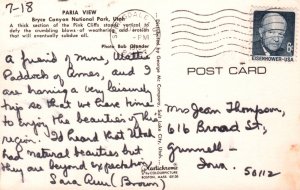 7-18
PARIA VIEW
Bryce Canyon National Park, Utah
A thick section of the Pink Cliffs stands vertical to
defy the crumbling blows of weathering and erosion
that will eventually subdue all.
PM
Photo Bob
A friend of mine,
Paddock of Ames, and I
are having a very leisurely
trip so that we have time
to enjoy the beauties of this
region. I'd heard that Utah
had natural beauties but
they are beyond expectation
Sara Ann (Brown)
Distributed by George Mc Conway, Salt Lake City, Utah
Plastichrome
BOSTON, MASS
EISENHOWER·USA
6c
POST CARD
Mrs Jean Thompson,
616 Broad St,
Grinnell -
Iowa.
50112